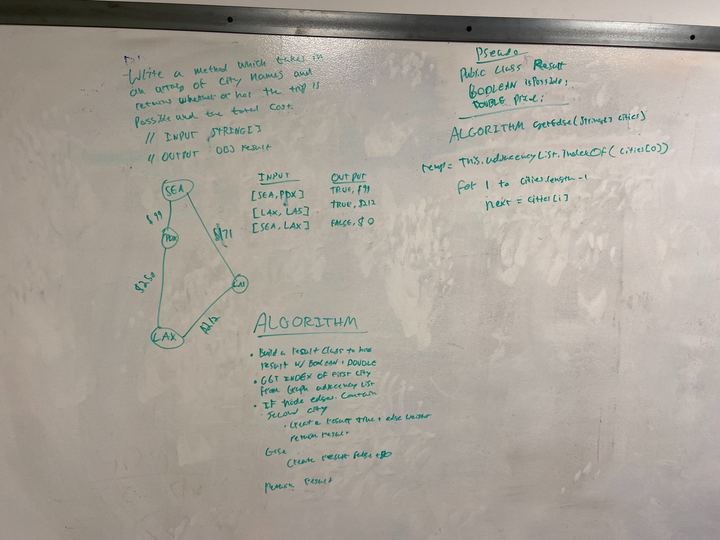 Write a method which takes in
an array of city names and
returns whether or not the trip is
possible and the total cost.
// INPUT STRING[]
// OUTPUT OBJ result
SEA
$99
PDX
$171
$250
LAS
LAX
$212
INPUT OUTPUT
[SEA, PDX] TRUE, $99
[LAX, LAS] TRUE, $212
[SEA, LAX] FALSE, $0
ALGORITHM
• Build a result class to have
result w/ BOOLEAN + DOUBLE
• GET INDEX of first city
from Graph adjacency list
• If node edges contain
second city
• Create a result true + edge weight
return result
Else
Create result false + $0
Return result
Pseudo
Public class Result
BOOLEAN isPossible;
DOUBLE price;
ALGORITHM getEdge(String[] cities)
temp = this.adjacencyList.IndexOf(cities[0])
for 1 to cities.length -1
next = cities[i]